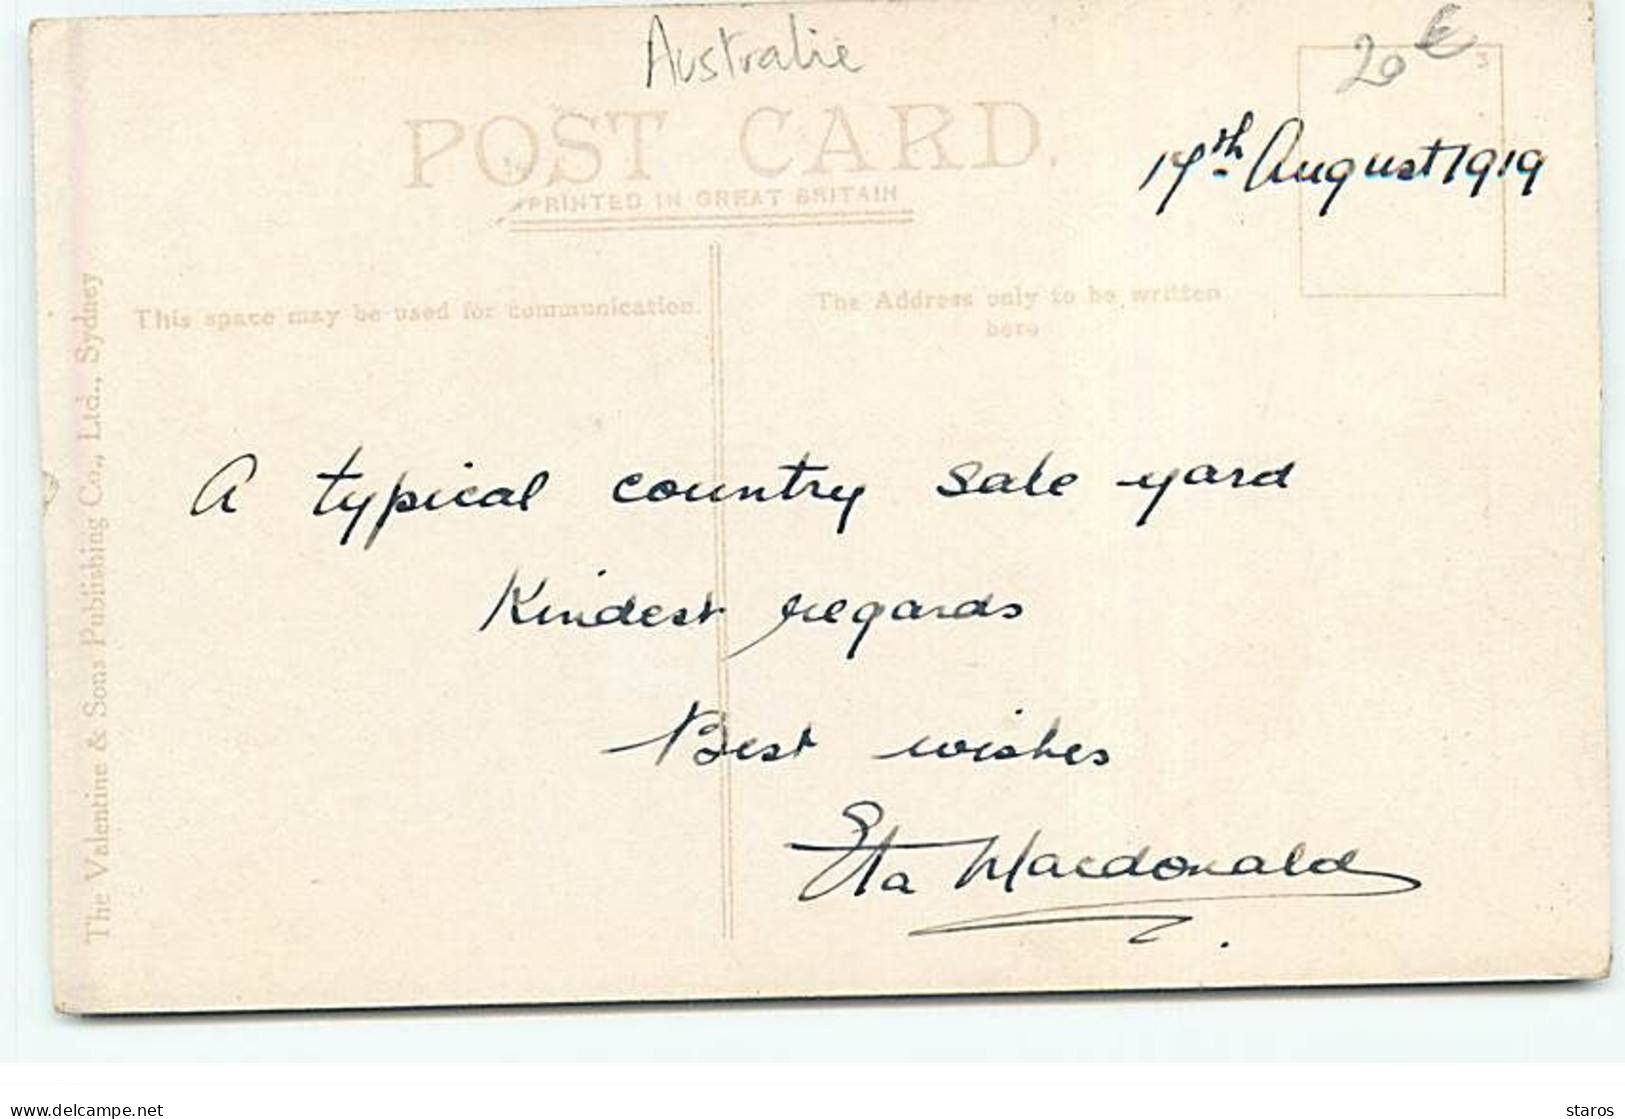 Australie
20 €
3
POST CARD.
PRINTED IN GREAT BRITAIN
17th August 1919
This space may be used for communication.
The Address only to be written
here
The Valentine & Sons Publishing Co., Ltd., Sydney
A typical country sale yard
Kindest regards
Best wishes
Eta Macdonald
delcampe.net
staros